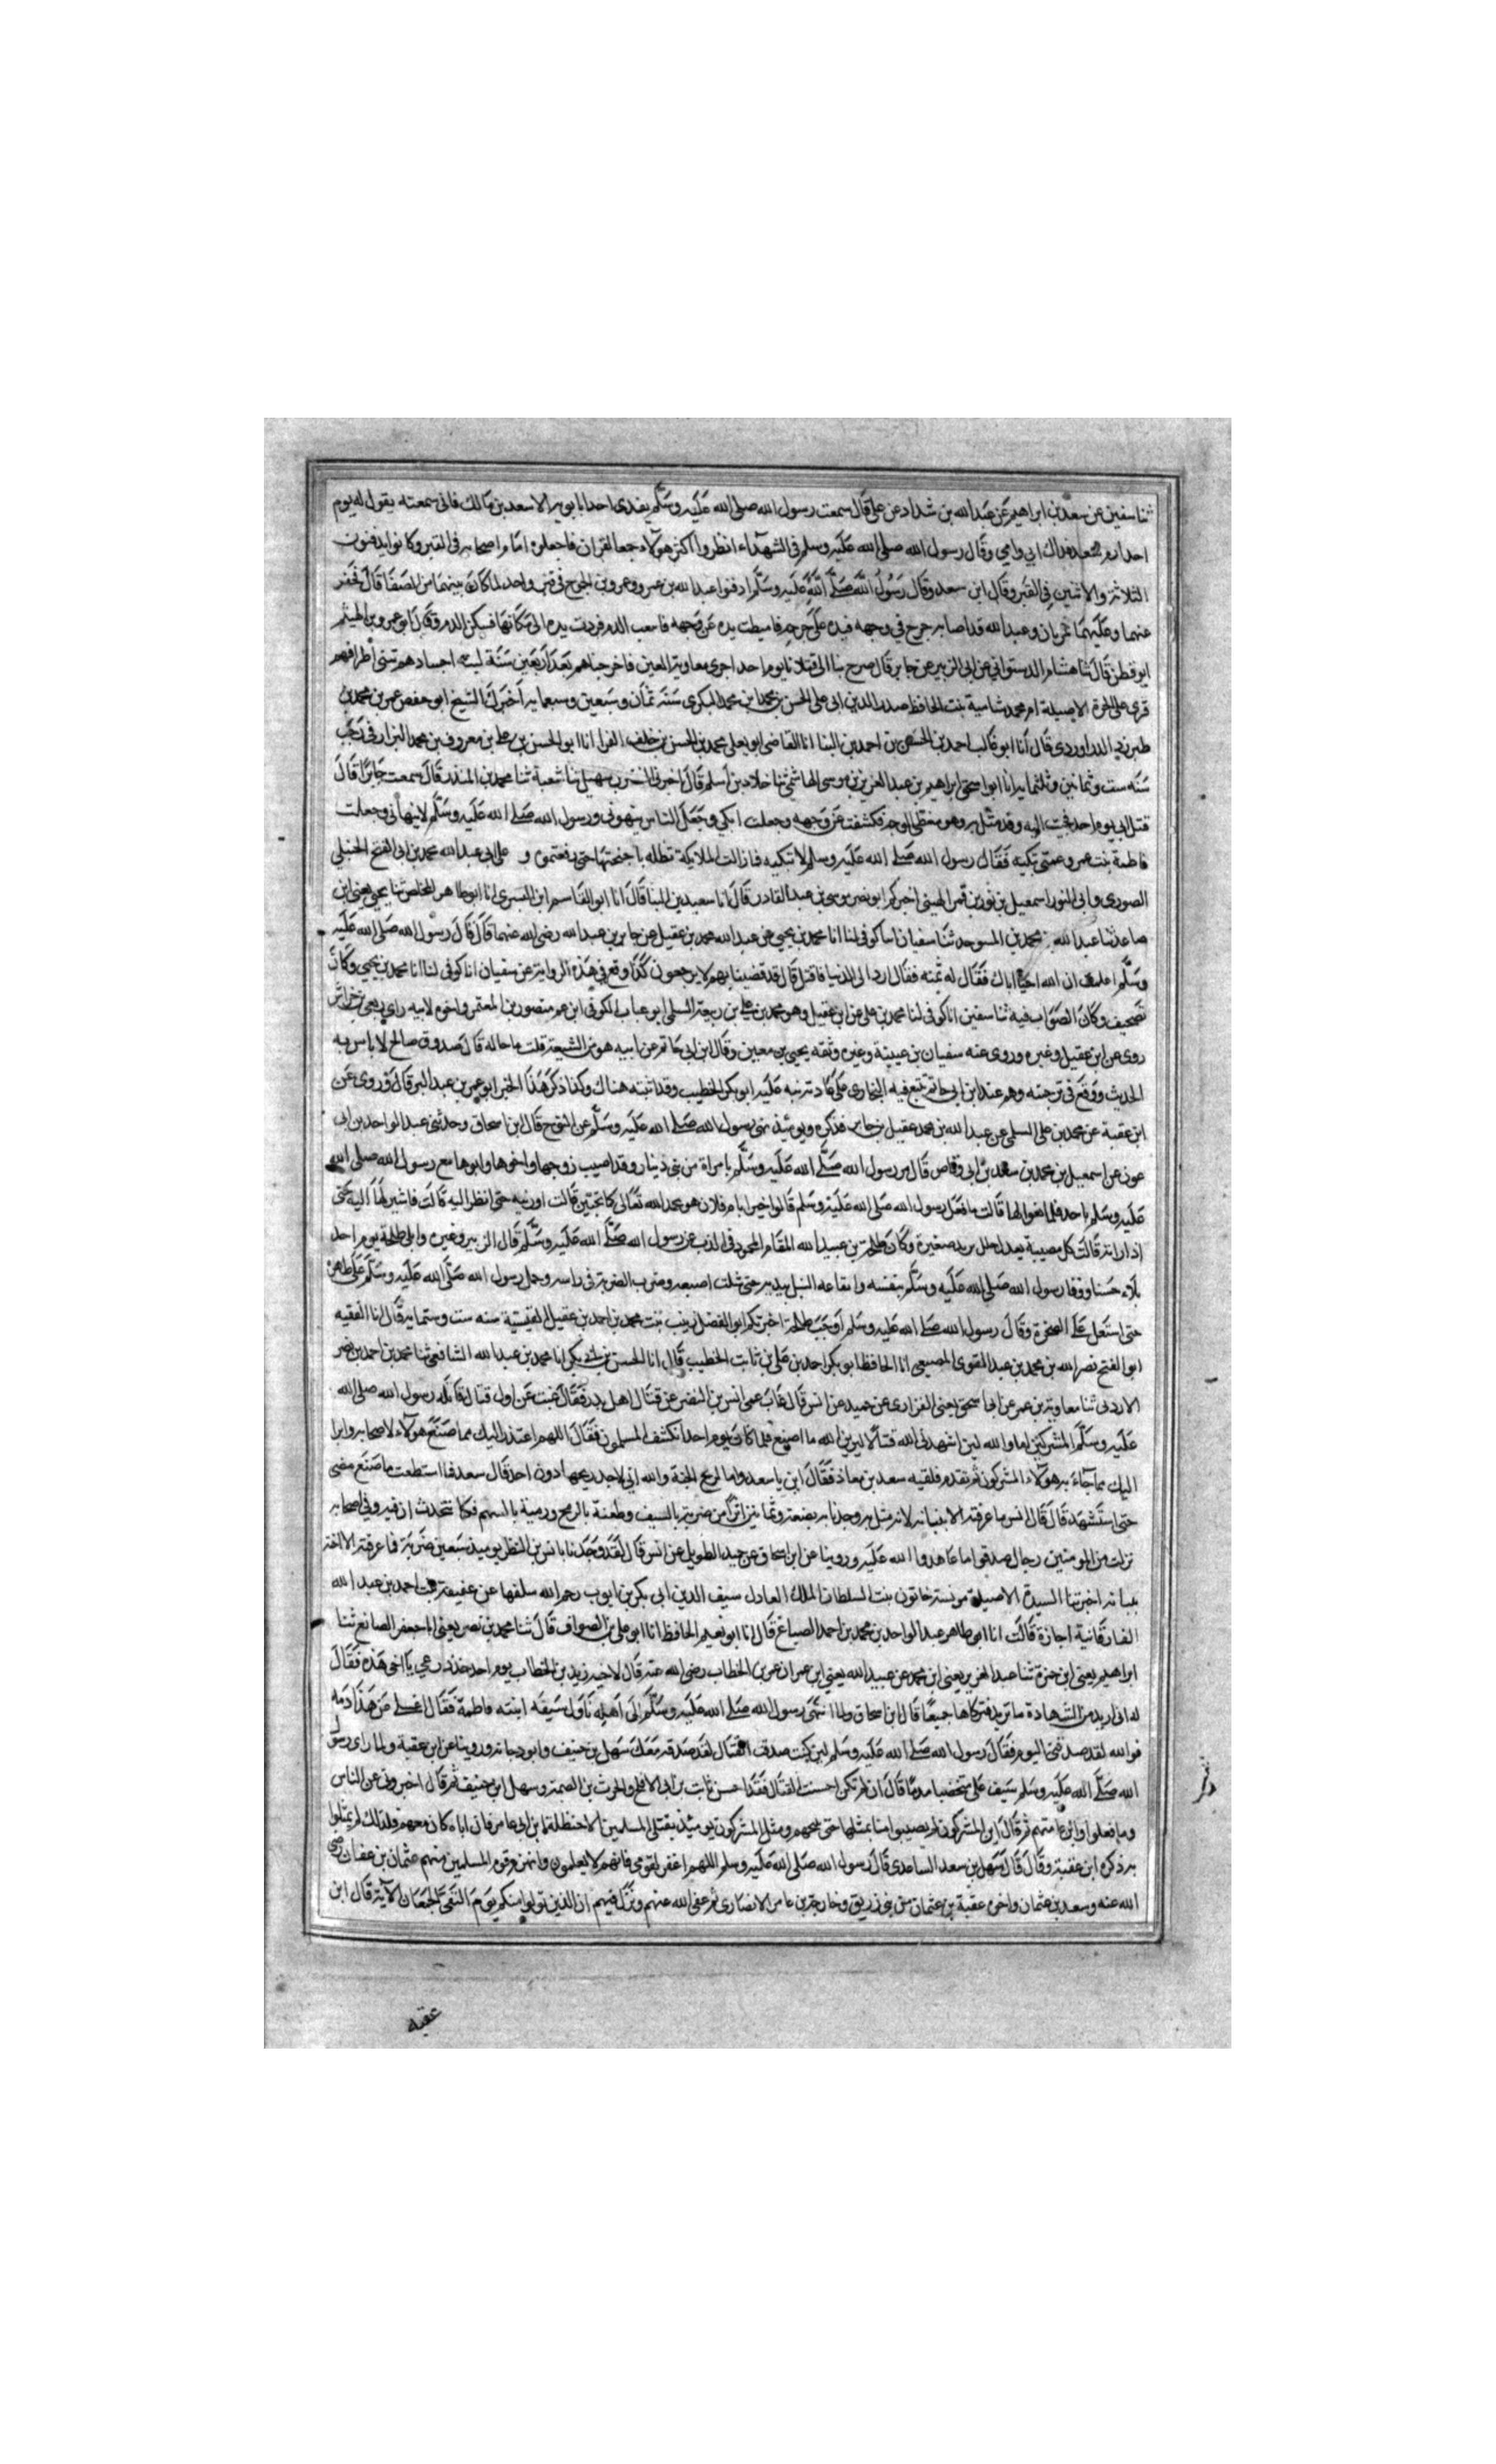 ثنا سفين عن سعد بن ابراهيم عن عبد الله بن شداد عن علي قال سمعت رسول الله صلى الله عليه وسلم يفدي احدا بابويه الا سعد بن مالك فاني سمعته يقول له يوم
احد ارم سعد فداك ابي وامي وقال رسول الله صلى الله عليه وسلم في الشهداء انظروا اكثر هولاء جمعا للقران فاجعلوه امام اصحابه في القبر وكانوا يدفنون
الثلاثة والاثنين في القبر وقال ابن سعد وقال رسول الله صلى الله عليه وسلم ادفنوا عبد الله بن عمرو وعمرو بن الجموح في قبر واحد لما كان بينهما من الصفا قال فحفر
عنهما وعليهما نمرتان وعبد الله قد اصابه جرح في وجهه فيده على جرحه فاميطت يده عن وجهه فانبعث الدم فردت يده الى مكانها فسكن الدم وقال ابو عمرو بن الهيثم
ابو قطن قال ثنا هشام الدستوائي عن ابي الزبير عن جابر قال صرخ بنا الى قتلانا يوم احد اجرى معاوية العين فاخرجناهم بعد اربعين سنة لينة اجسادهم تثنى اطرافهم
قرئ على الحرة الاصيلة ام محمد شامية بنت الحافظ صدر الدين ابي علي الحسن بن محمد ابن محمد البكري سنة ثمان وسبعين وسبعمايه اخبرك الشيخ ابو حفص عمر بن محمد بن
طبرزد الداراوردي قال انا ابو غالب احمد بن الحسن بن احمد بن البنا انا القاضي ابو يعلى محمد بن الحسن بن خلف الفرا انا ابو الحسن بن علي بن معروف بن محمد البزار في رجب
سنه ست وثمانين وثلثمايه انا ابو اسحق ابراهيم بن عبد العزيز بن موسى الهاشمي ثنا خلاد بن اسلم قال اخبرني النضر بن سهيل ثنا شعبة ثنا محمد بن المنذر قال سمعت جابرا قال
قتل ابي يوم احد فجيت اليه وقد مثل به وهو مغطى الوجه فكشفت عن وجهه وجعلت ابكي وجعل الناس ينهوني ورسول الله صلى الله عليه وسلم لا ينهاني وجعلت
فاطمة بنت عمرو عمتي تبكيه فقال رسول الله صلى الله عليه وسلم لا تبكيه فما زالت الملايكة تظله باجنحتها حتى رفعتموه و على ابي عبد الله محمد بن ابي الفتح الحنبلي
الصوري وابي النور اسمعيل بن نور بن قمر الهيتي اخبركم ابو نصر موسى بن عبد القادر قال انا سعيد بن البنا قال انا ابو القاسم ابن البسري انا ابو طاهر المخلص ثنا يحيى يعني ابن
صاعد ثنا عبد الله بن محمد بن المسور حدثنا سفيان انا كوفي لنا انا محمد بن يحيى عن عبد الله محمد بن عقيل عن جابر بن عبد الله رضي الله عنهما قال قال رسول الله صلى الله عليه
وسلم اعلمت ان الله احيا اباك فقال له تمنه فقال ارد الى الدنيا فاقتل قال قد قضينا بهم لا يرجعون كذا وقع في هذه الرواية عن سفيان انا كوفي لنا انا محمد بن يحيى وكان
تصحيف وكان الصواب فيه ثنا سفين انا كوفي لنا محمد بن علي عن ابن عقيل وهو محمد بن علي بن ربيعة السلمي ابو عباب الكوفي ابن عم منصور بن المعتمر واخوه لابيه راي ربعي بن خراش
روى عن ابن عقيل وغيره وروى عنه سفيان بن عيينة وغيره وثقه يحيى بن معين وقال ابن ابي حاتم عن ابيه هو من الشيعة قلت ما حاله قال صدوق صالح لا باس به
الحديث ووقع في ترجمته وهم عند ابن ابي حاتم تتبع فيه البخاري على عادته نبه عليه ابو بكر الخطيب وقد اثبته هناك وكنا ذكر هذا الخبر ابو عمر بن عبد البر قال وروى عن
ابن عقبة عن محمد بن علي السلمي عن عبد الله بن محمد عقيل عن جابر فذكره ويومئذ نهى رسول الله صلى الله عليه وسلم عن النوح قال ابن اسحاق وحدثني عبد الواحد بن ابي
عون عن اسمعيل بن محمد بن سعد بن ابي وقاص قال مر رسول الله صلى الله عليه وسلم بامراة من بني دينار وقد اصيب زوجها واخوها وابوها مع رسول الله صلى الله
عليه وسلم باحد فلما نعوا لها قالت ما فعل رسول الله صلى الله عليه وسلم قالوا خيرا يا ام فلان هو بحمد الله تعالى كما تحبين قالت اورنيه حتى انظر اليه قالت فاشير لها اليه حتى
اذا راته قالت كل مصيبة بعدك جلل يريد صغيرة وكان طلحة بن عبيد الله المقام المحمود في الذب عن رسول الله صلى الله عليه وسلم قال الزبير وغيره وابلى طلحة يوم احد
بلاء حسنا ووقا رسول الله صلى الله عليه وسلم بنفسه واتقاعه النبل بيده حتى شلت اصبعه وضرب الضربة في راسه وحمل رسول الله صلى الله عليه وسلم على ظهره
حتى استعل على الصخرة وقال رسول الله صلى الله عليه وسلم اوجب طلحة اخبرتكم ابو الفضل زينب بنت محمد بن احمد بن عقيل القيسية سنه ست وستمايه قال لنا الفقيه
ابو الفتح نصر الله بن محمد بن عبد القوي المصيصي انا الحافظ ابو بكر احمد بن علي بن ثابت الخطيب قال انا الحسن بن ابي بكر انا محمد بن عبد الله الشافعي ثنا محمد بن احمد بن نضر
الازدي ثنا معاوية بن عمر عن ابي اسحق يعني الفزاري عن حميد عن انس قال غاب عمي انس بن النضر عن قتال اهل بدر فقال غبت عن اول قتال قاتله رسول الله صلى الله
عليه وسلم المشركين اما والله لين اشهدني الله قتالا ليرين الله ما اصنع فلما كان يوم احد انكشف المسلمون فقال اللهم اعتذر اليك مما صنع هولاء لاصحابه وابرا
اليك مما جاء به هولاء المشركون ثم تقدم فلقيه سعد بن معاذ فقال اين يا سعد واها لريح الجنة والله اني لاجد ريحها دون احد قال سعد فما استطعت ما صنع مضى
حتى استشهد قال قال انس ما عرفته الا ببنانه لانه مثل به وجدنا به بضعة وثمانين اثرا من ضربة بالسيف وطعنة بالرمح ورمية بالسهم فكنا نتحدث ان فيه وفي اصحابه
نزلت من المومنين رجال صدقوا ما عاهدوا الله عليه وروينا عن ابن اسحاق عن حميد الطويل عن انس قال لقد وجدنا بانس بن النظر يوميذ سبعين ضربة فما عرفته الا اخته
ببنانه اخبرتنا السيدة الاصيلة مونسة خاتون بنت السلطان الملك العادل سيف الدين ابي بكر بن ايوب رحم الله سلفها عن عفيفة بنت احمد بن عبد الله
الفارقانية اجازة قالت انا ابو طاهر عبد الواحد بن محمد بن احمد الصباغ قال انا ابو نعيم الحافظ انا ابو علي بن الصواف قال ثنا محمد بن نصر يعني ابا جعفر الصانع ثنا
ابراهيم يعني ابن حمزة ثنا عبد العزيز يعني ابن محمد عن عبيد الله يعني ابن عمر ان عمر بن الخطاب رضي الله عنه قال لاخيه زيد بن الخطاب يوم احد خذ درعي يا اخي هذه فقال
له اني اريد من الشهادة ما تريد فتركاها جميعا قال ابن اسحاق ولما انتهى رسول الله صلى الله عليه وسلم الى اهله ناول سيفه ابنته فاطمة فقال اغسلي عن هذا دمه
فوالله لقد صدقني اليوم فقال رسول الله صلى الله عليه وسلم لين كنت صدقت القتال لقد صدقه معك سهل بن حنيف وابو دجانة وروينا عن ابن عقبة ولما راى رسول
الله صلى الله عليه وسلم سيف علي مختضبا مدما قال ان تكن احسنت القتال فقد احسن ثابت بن ابي الافلح والحرث بن الصمة وسهل ابن حنيف ثم قال اخبروني عن الناس
وما فعلوا واين عامتهم ثم قال ان المشركون لم يصيبوا منا بمثلها حتى نبيحهم ومثل المشركون يوميئذ بقتلى المسلمين الا حنظلة ابن ابي عامر فان اباه كان معهم فلذلك لم يمثلوا
به ذكره ابن عقبة وقال قال سهل بن سعد الساعدي قال رسول الله صلى الله عليه وسلم اللهم اغفر لقومي فانهم لا يعلمون وانهزم قوم المسلمين منهم عثمان بن عفان رضي
الله عنه وسعد بن عثمان واخوه عقبة بن عثمان من بني زريق وخارجة بن عامر الانصاري ثم عفى الله عنهم ونزل فيهم ان الذين تولوا منكم يوم التقى الجمعان الاية قال ابن
عقبه